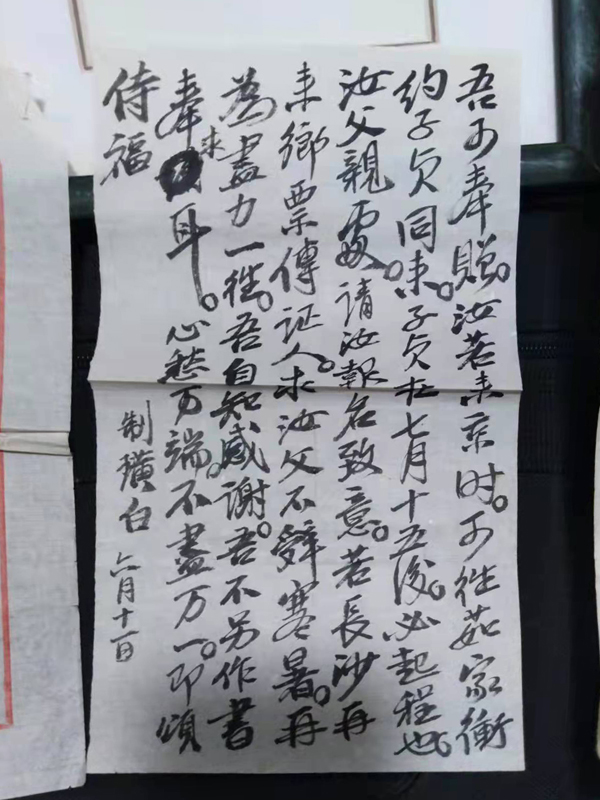 吾可奉贈。汝若来京時。可往茹家衝
約子贞同来。子贞在七月十五後。必起程也。
汝父親處。請汝報名致意。若長沙再
来鄉票傳证人。求汝父不辞寒暑。再
為盡力一往。吾自知感謝。吾不另作書
奉求耳。心愁万端。不盡万一。即頌
侍福
制璜白 六月十一日